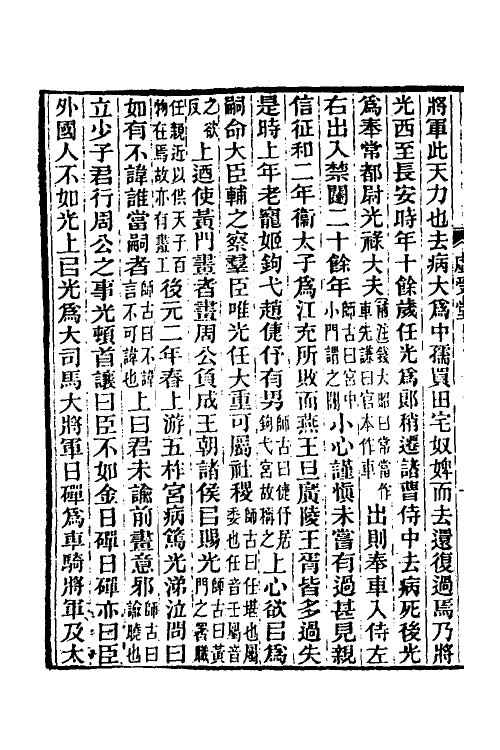 將軍此天力也去病大爲中孺買田宅奴婢而去還復過焉乃將
光西至長安時年十餘歲任光爲郎稍遷諸曹侍中去病死後光
爲奉常都尉光祿大夫補注錢大昭曰常當作車先謙曰官本作車出則奉車入侍左
右出入禁闥二十餘年師古曰宮中小門謂之闥小心謹愼未嘗有過甚見親
信征和二年衞太子爲江充所敗而燕王旦廣陵王胥皆多過失
是時上年老寵姬鉤弋趙倢伃有男師古曰倢伃居鉤弋宮故稱之上心欲㠯爲
嗣命大臣輔之察羣臣唯光任大重可屬社稷師古曰任堪也屬委也任音壬屬音
之欲反上廼使黃門畫者畫周公負成王朝諸侯㠯賜光師古曰黃門之署職
任親近以供天子百物在焉故亦有畫工後元二年春上游五柞宮病篤光涕泣問曰
如有不諱誰當嗣者師古曰不諱言不可諱也上曰君未諭前畫意邪師古曰諭曉也
立少子君行周公之事光頓首讓曰臣不如金日磾日磾亦曰臣
外國人不如光上㠯光爲大司馬大將軍日磾爲車騎將軍及太